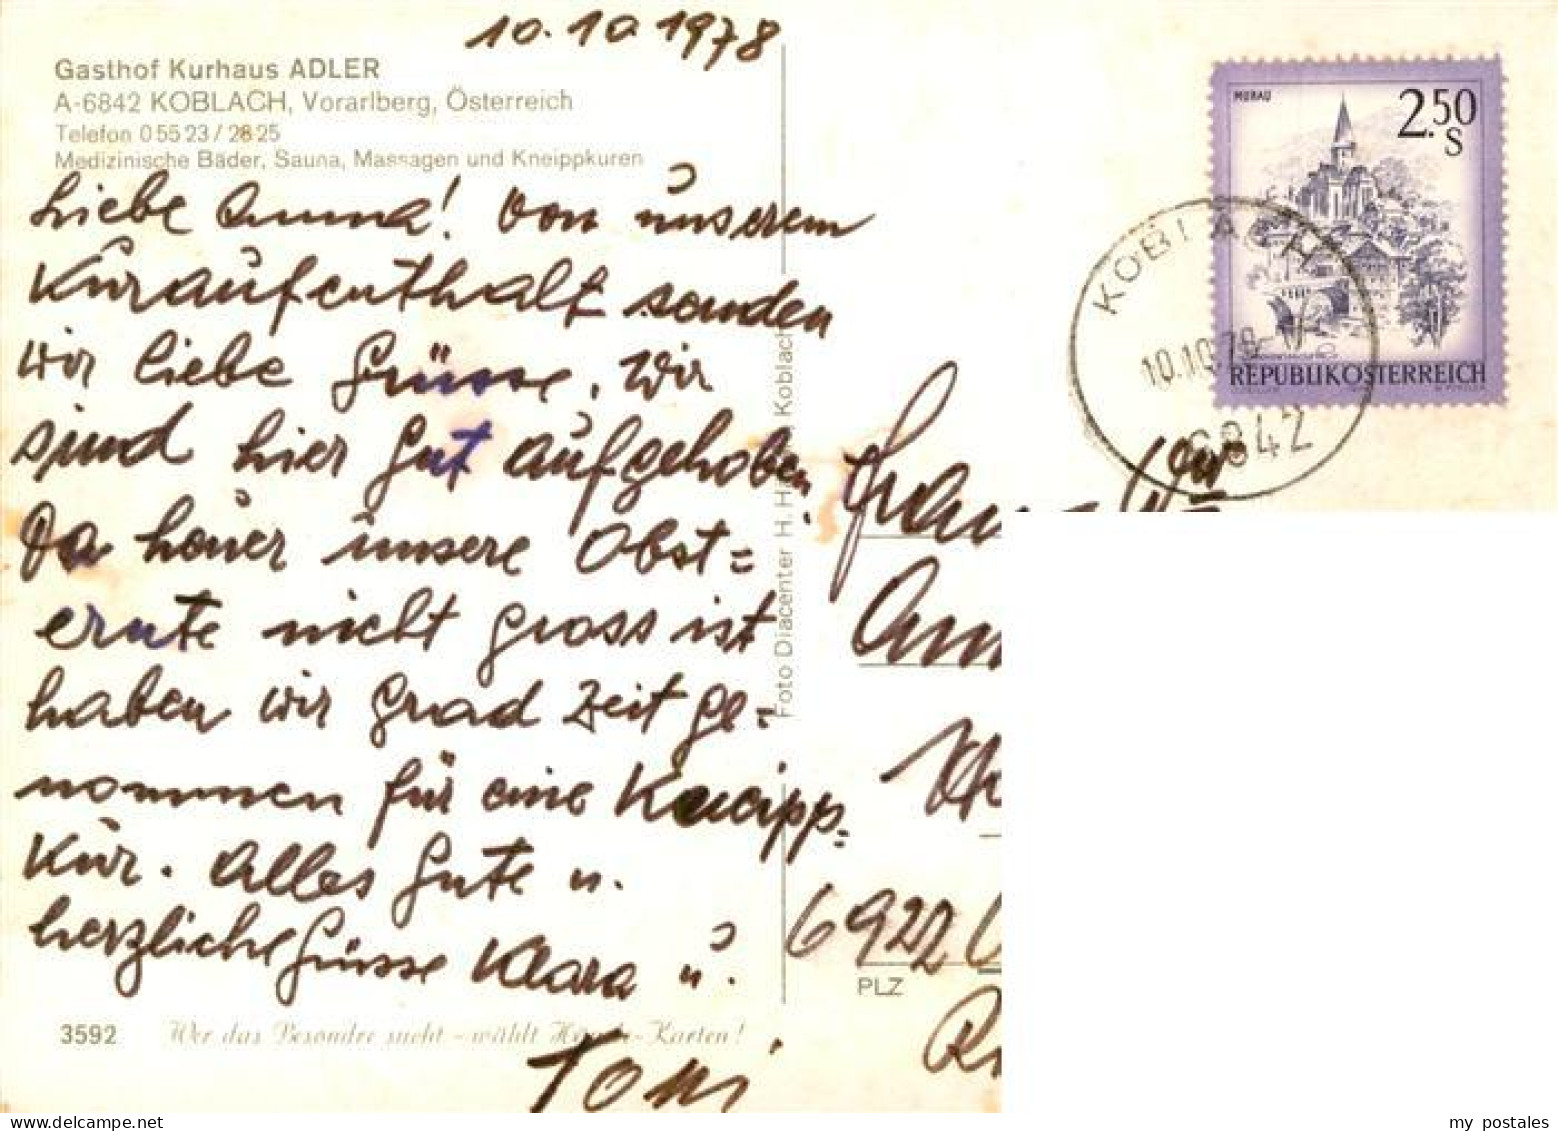 10.10 1978
Gasthof Kurhaus ADLER
A-6842 KOBLACH, Vorarlberg, Österreich
Telefon 0 55 23 / 28 25
Medizinische Bäder, Sauna, Massagen und Kneippkuren
Liebe Anna! Von unserem
Kuraufenthalt senden
wir liebe Grüsse. Wir
sind hier gut aufgehoben
Da heuer unsere Obst=
ernte nicht gross ist
haben wir grad Zeit ge=
nommen für eine Kneipp=
Kur. Alles Gute u.
herzliche Grüsse Klara u.
Toni
3592 Wer das Besondre sucht - wählt Karten!
Foto Diacenter H. Koblach
MURAU
2.50
S
REPUBLIK ÖSTERREICH
KOBLACH
10.10.78
6842
Frau
6922
PLZ
my postales